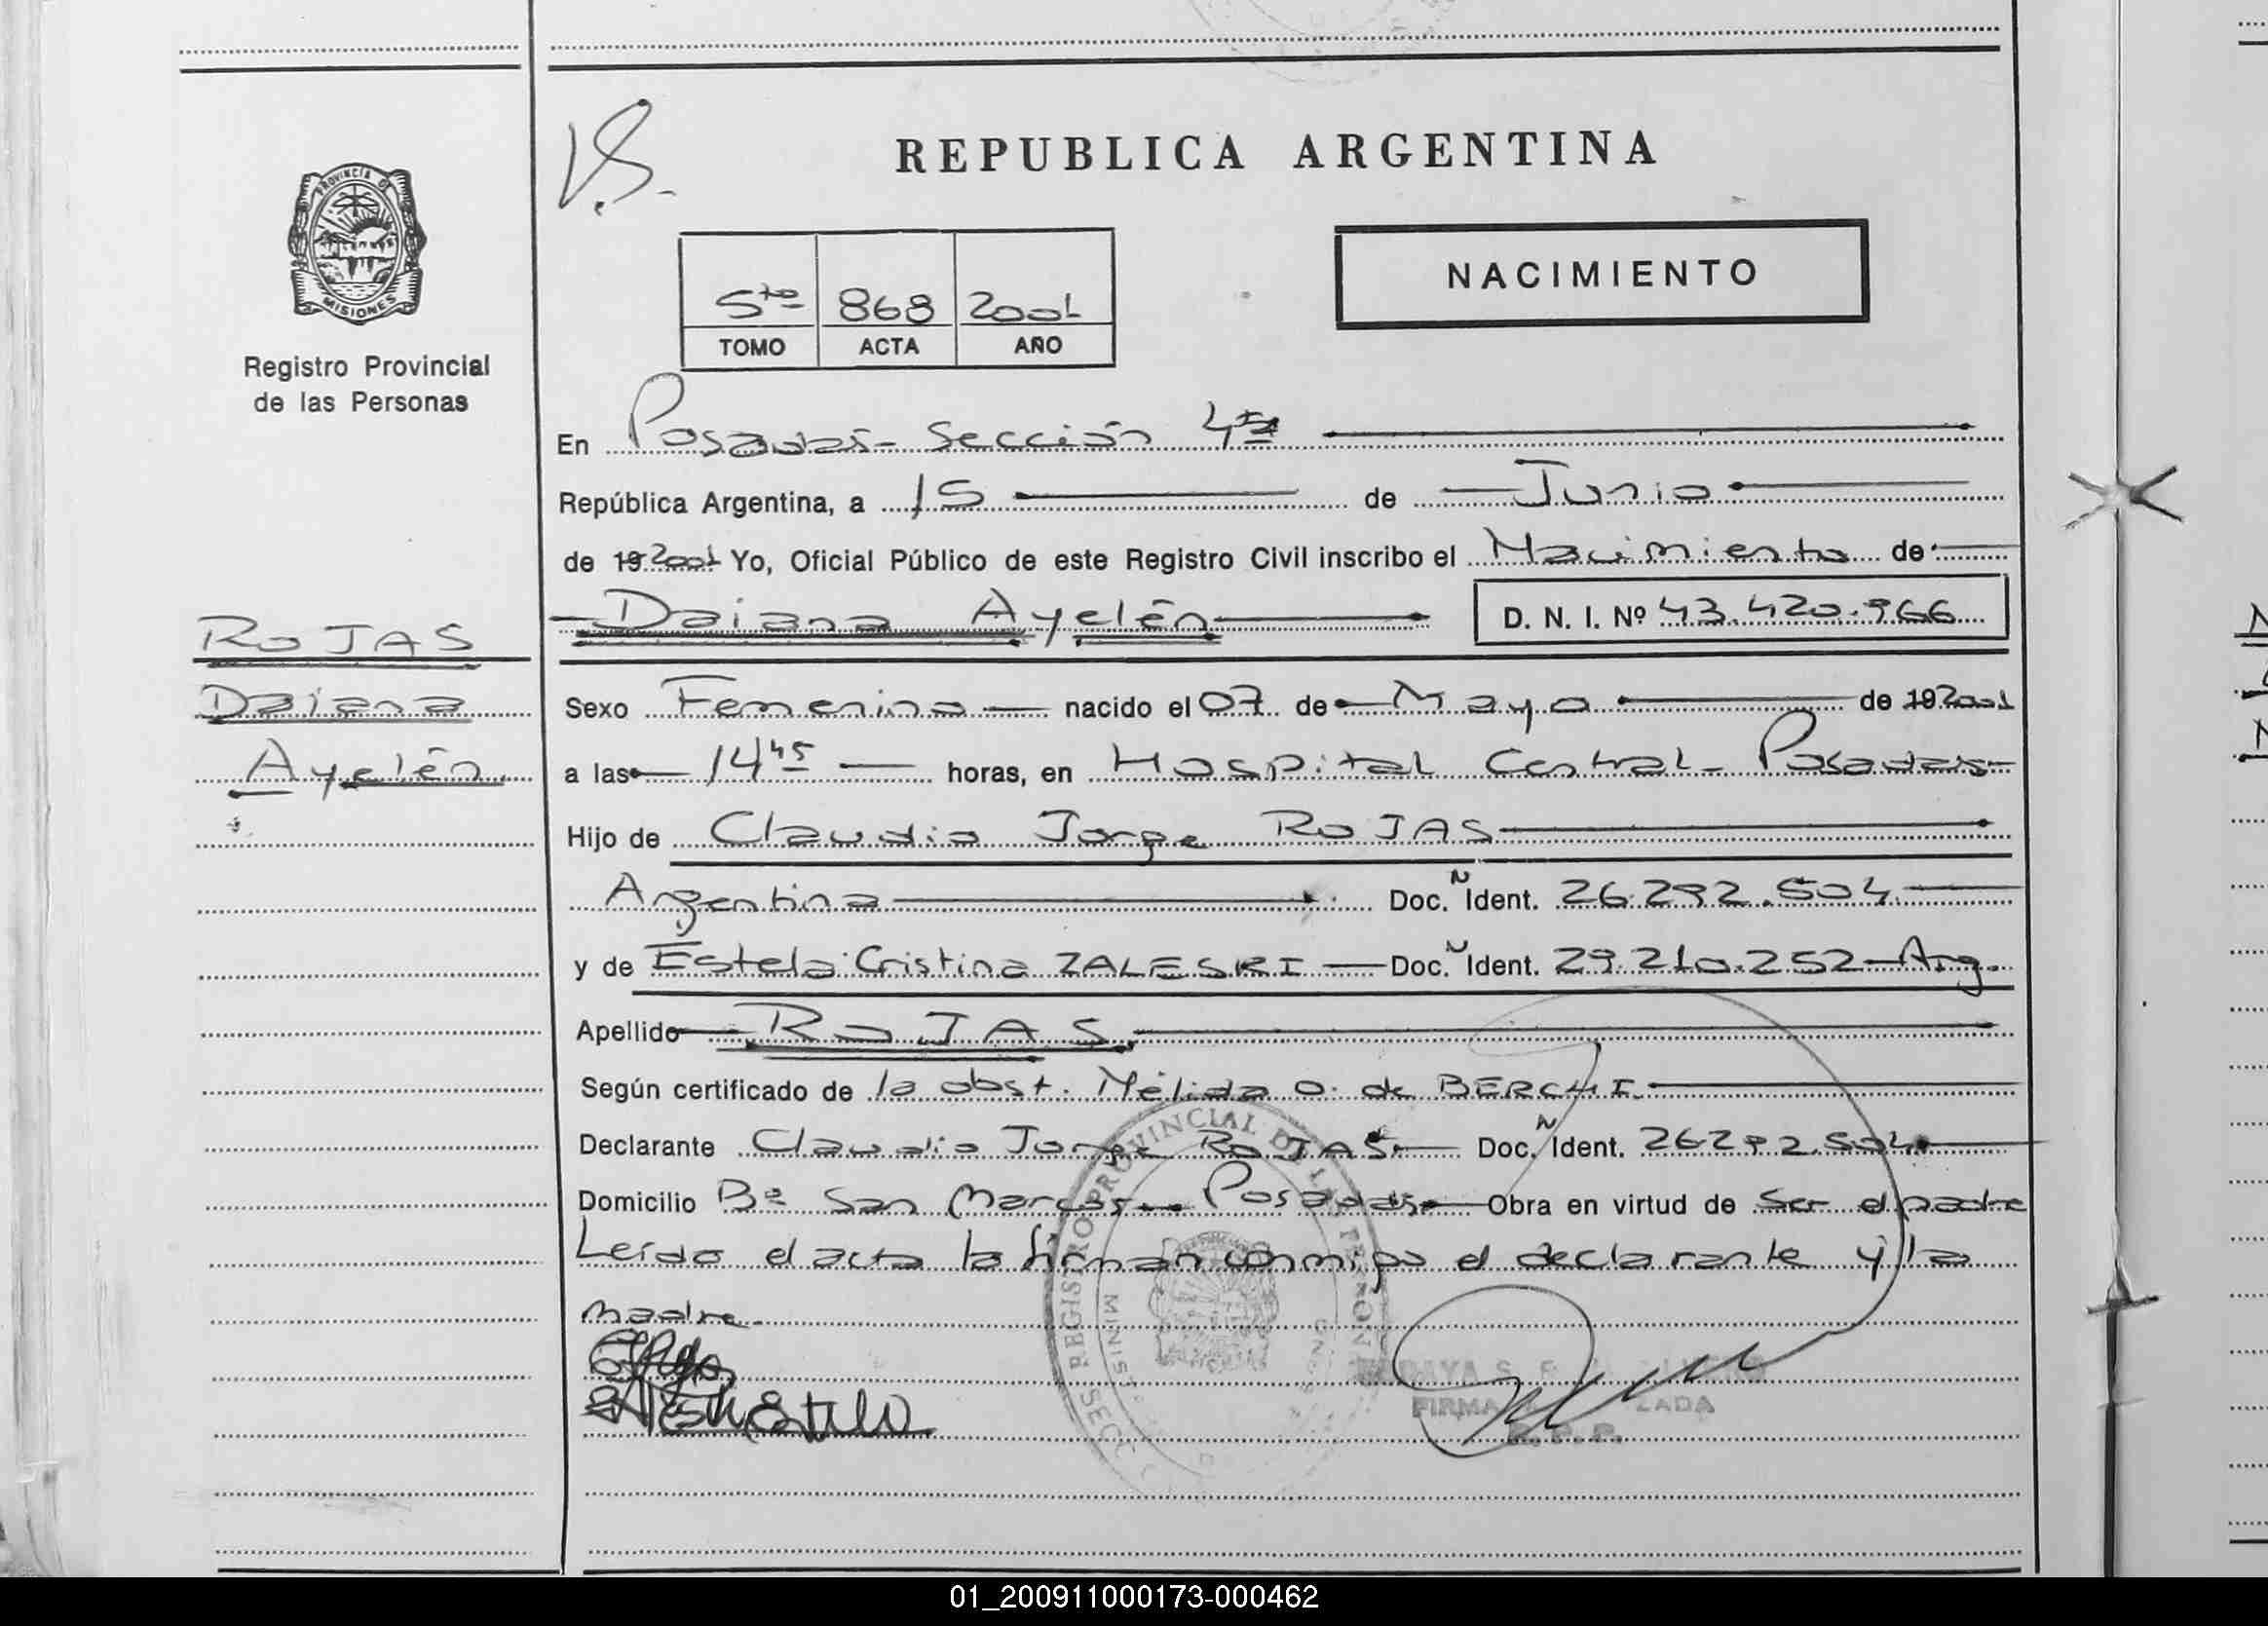 REPUBLICA ARGENTINA
PROVINCIA DE
MISIONES
Registro Provincial
de las Personas
NACIMIENTO
5to 868 2001
TOMO ACTA AÑO
En Posadas - Sección 4ta
República Argentina, a 15 de Junio
de 19 2001 Yo, Oficial Público de este Registro Civil inscribo el Nacimiento de
Daiana Ayelén D. N. I. Nº 43.420.966
ROJAS
Daiana
Ayelén.
Sexo Femenino nacido el 07 de Mayo de 19 2001
a las 14 45 horas, en Hospital Central - Posadas
Hijo de Claudio Jorge ROJAS
Argentina Doc. Ñ Ident. 26.292.504
y de Estela Cristina ZALESKI Doc. Ñ Ident. 29.210.252 - Arg.
Apellido ROJAS
Según certificado de la obst. Nélida O. de BERCHI.
Declarante Claudio Jorge ROJAS Doc. Ñ Ident. 26292.504
Domicilio Bº San Marcos - Posadas Obra en virtud de ser el padre
Leído el acta la firman conmigo el declarante y la
madre.
REGISTRO PROVINCIAL DE LAS PERSONAS
FIRMA
R. P. P.
01_200911000173-000462